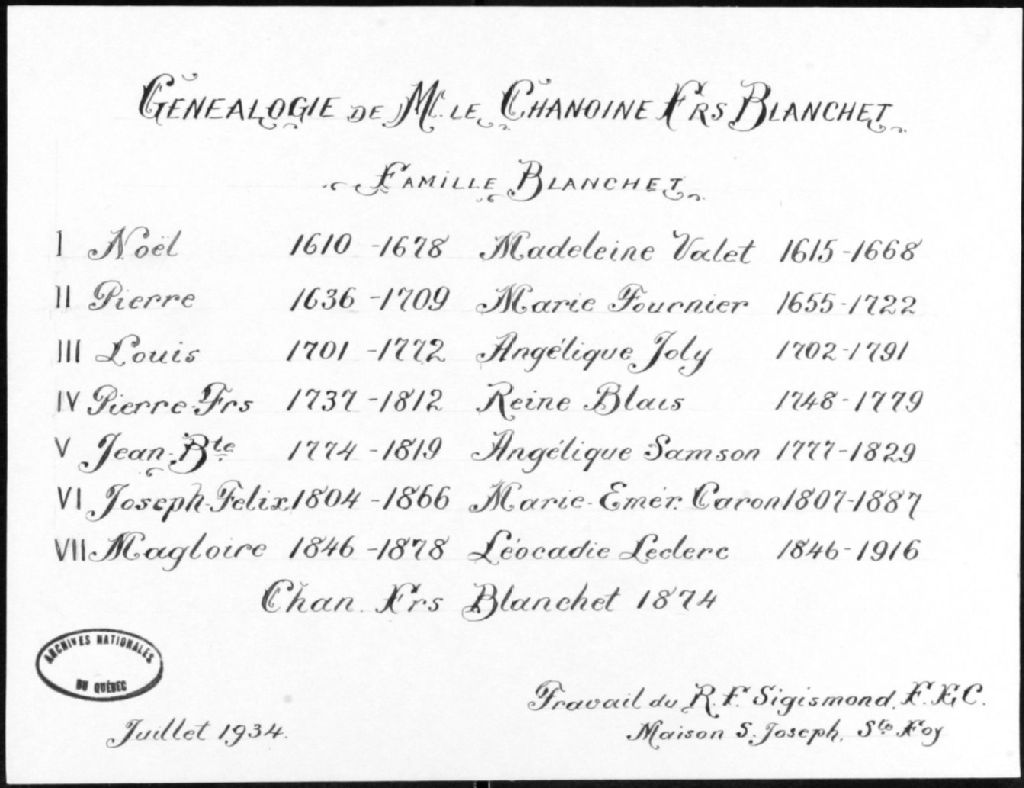 GENEALOGIE DE M. LE CHANOINE FRS BLANCHET
FAMILLE BLANCHET
I Noël 1610-1678 Madeleine Valet 1615-1668
II Pierre 1636-1709 Marie Fournier 1655-1722
III Louis 1701-1772 Angélique Joly 1702-1791
IV Pierre-Frs 1737-1812 Reine Blais 1748-1779
V Jean-Bte 1774-1819 Angélique Samson 1777-1829
VI Joseph-Felix 1804-1866 Marie-Emér. Caron 1807-1887
VII Magloire 1846-1878 Léocadie Leclerc 1846-1916
Chan. Frs Blanchet 1874
ARCHIVES NATIONALES
DU QUÉBEC
Travail du R. F. Sigismond, F.E.C.
Juillet 1934.
Maison S. Joseph, Ste Foy